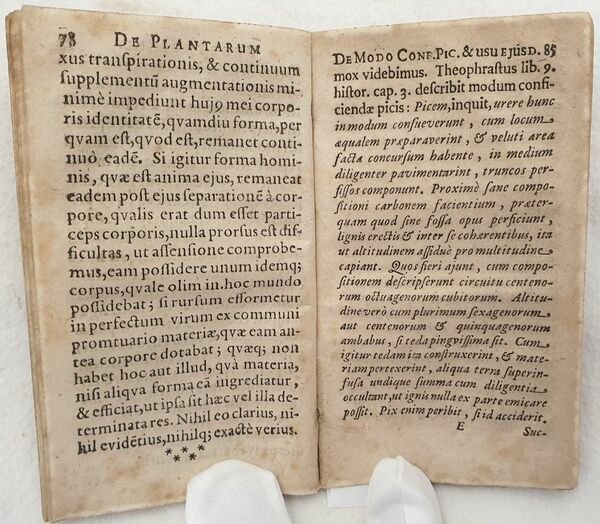 78 DE PLANTARUM
xus transpirationis, & continuum
supplementũ augmentationis mi-
nimè impediunt huj9 mei corpo-
ris identitatẽ, quamdiu forma, per
quam est, quod est, remanet conti-
nuò eadẽ. Si igitur forma homi-
nis, quæ est anima ejus, remaneat
eadem post ejus separationẽ à cor-
pore, qualis erat dum esset parti-
ceps corporis, nulla prorsus est dif-
ficultas, ut assensione comprobe-
mus, eam possidere unum idemq;
corpus, quale olim in hoc mundo
possidebat; si rursum efformetur
in perfectum virum ex communi
promtuario materiæ, quæ eam an-
tea corpore dotabat; quæq; non
habet hoc aut illud, quà materia,
nisi aliqva forma eã ingrediatur,
& efficiat, ut ipsa sit hæc vel illa de-
terminata res. Nihil eo clarius, ni-
hil evidẽtius, nihilq; exactè verius.
DE MODO CONF. PIC. & usu EJUSD. 85
mox videbimus. Theophrastus lib. 9.
histor. cap. 3. describit modum confi-
ciendæ picis: Picem, inquit, urere hunc
in modum consueverunt, cum locum
æqualem præparaverint, & veluti area
facta concursum habente, in medium
diligenter pavimentarint, truncos per-
fissos componunt. Proximè sane compo-
sitioni carbonem facientium, præter-
quam quod sine fossa opus perficiunt,
lignis erectis & inter se cohærentibus, ita
ut altitudinem assiduè pro multitudine
capiant. Quos fieri ajunt, cum compo-
sitionem descripserunt circuitu centeno-
rum octuagenorum cubitorum. Altitu-
dine verò cum plurimum sexagenorum
aut centenorum & quinquagenorum
ambabus, si teda pingvissima sit. Cum
igitur tedam ita construxerint, & mate-
riam pertexerint, aliqua terra superin-
fusa undique summa cum diligentia
occultant, ut ignis nulla ex parte emicare
possit. Pix enim peribit, si id acciderit.
E Suc-